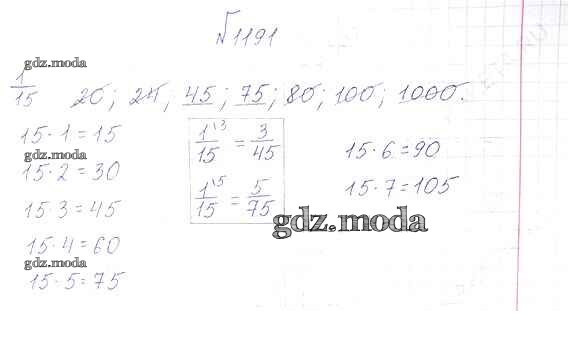 №1191
gdz.moda
1/15 20; 24; 45; 75; 80; 100; 1000.
15·1=15
gdz.moda
15·2=30
15·3=45
15·4=60
gdz.moda
15·5=75
1\3/15 = 3/45
1\5/15 = 5/75
15·6=90
15·7=105
gdz.moda